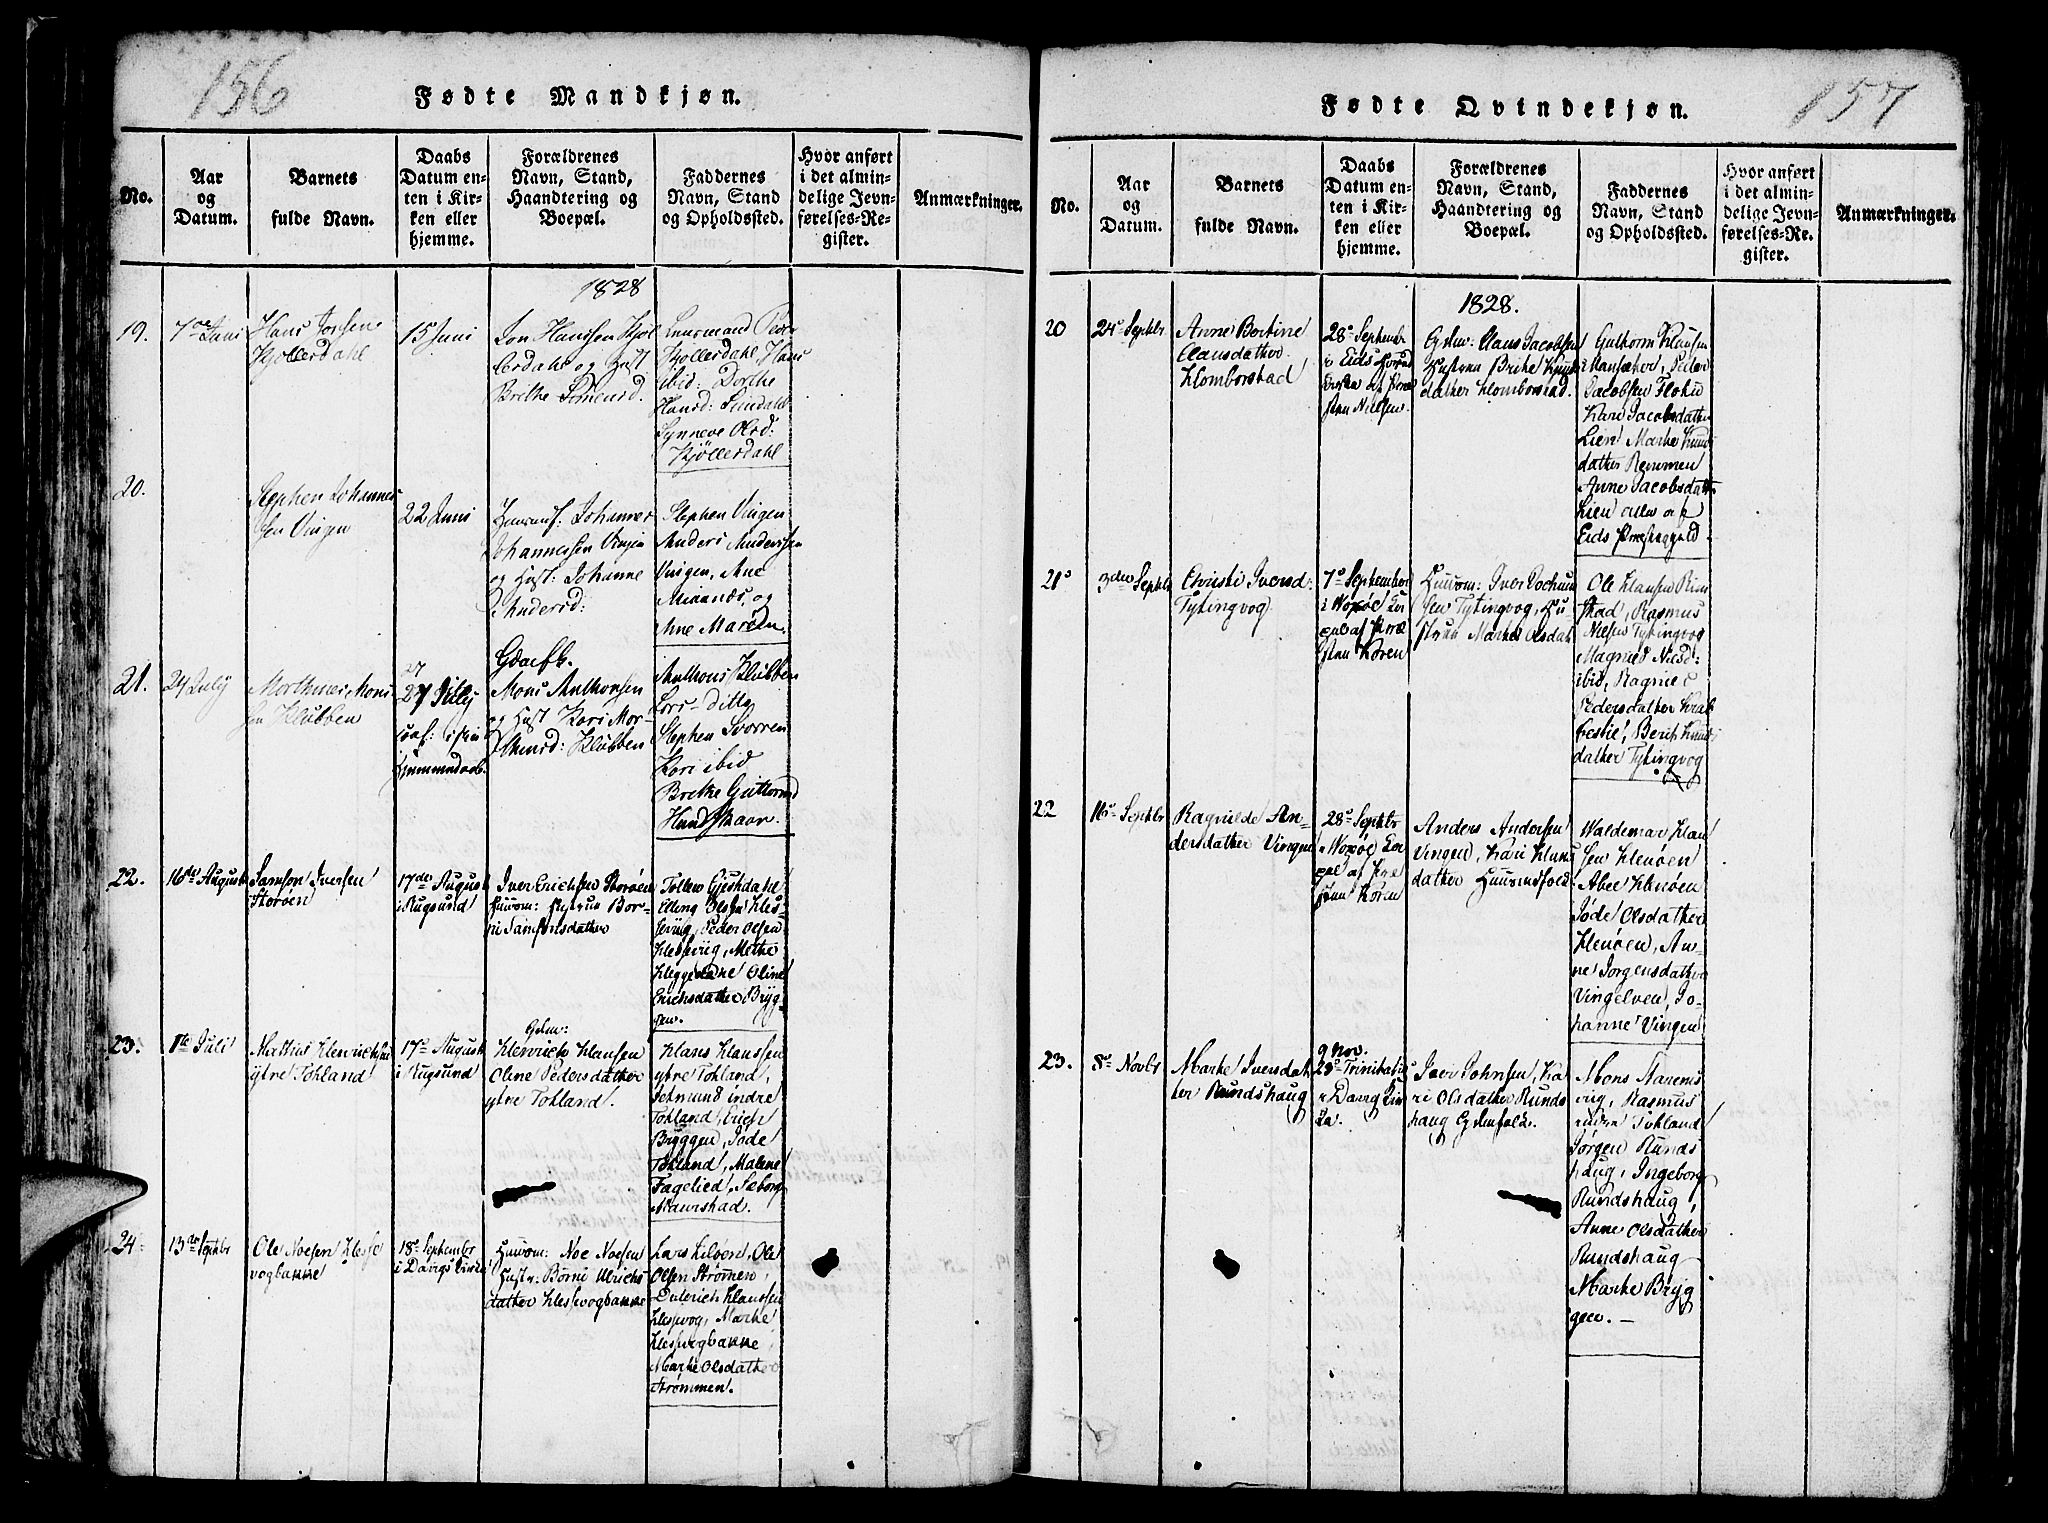 156
Fødte Mandkjøn.
No.
Aar
og
Datum.
Barnets
fulde Navn.
Daabs
Datum en-
ten i Kir-
ken eller
hjemme.
Forældrenes
Navn, Stand,
Haandtering og
Boepæl.
Faddernes
Navn, Stand
og Opholdssted.
Hvor anført
i det almin-
delige Jevn-
førelses-Re-
gister.
Anmærkninger.
1828
19.
7de Juni
Hans Jonsen
Kjøllerdahl
15 Juni
Jon Hanssen Kjøl
lerdahl og Hust
Brithe Simensd.
Lensmand
Kjøllerdahl, Hans
ibid: Dorthe
Hansd: Sundahl
Synneve Olsd:
Kjøllerdahl
20.
Stephen Johannes
sen Vingen
22 Juni
Huusm: Johannes
Johannessen Vingen
og Hust: Johanne
Andersd:
Stephen Vingen
Anders Anderssen
Vingen, Ane
og
Ane Maren
21.
24 July
Morthines Mons
sen Klubben
27
27 July
Hjemmedøb.
Gdmfk.
Mons Anthonsen
og Hust Kari Mor-
thensd: Klubben
Anthoni Klubben
Lars ditto
Stephen Svorren
Kari ibid
Brethe Guttormsd
Hundskaar.
22.
16de August
Samson Iversen
Storøen
17de August
i Rugsund
Iver Erichsen Storøen
Huusm: Hustrue Bor-
ni Samsonsdatter
Tollew Gjestdahl
Elling Olsen Kles-
vug, Peder Olsen
Klessvug, Methe
Oline
Erichsdatter Bryg-
gen.
23.
1te Juli
Mathis Henrichsen
ytre Tokland
17de August
i Rugsund
Gdm:
Henrich Klausen
Oline Pedersdatter
ytre Tokland.
Klaus Klaussen
ytre Tokland,
Jetmund indre
Tokland, Erich
Bryggen, Jode
Tokland, Malene
Fagelied, Seborg
Naverstad.
24.
13de Septbr
Ole Noesen Klesse
vogbakke
18de September
i Davigs Kirke
Huusm: Noe Noesen
Hustr: Børni Ulrichs
datter Klessvogbakke
Lars Liløen, Ole
Olsen Strømen,
Diderich Klaussen
Klessvog, Marthe
Klessvogbakke,
Marthe Olsdatter
Strømmen.
157
Fødte Qvindekjøn.
No.
Aar
og
Datum.
Barnets
fulde Navn.
Daabs
Datum en-
ten i Kir-
ken eller
hjemme.
Forældrenes
Navn, Stand,
Haandtering og
Boepæl.
Faddernes
Navn, Stand
og Opholdssted.
Hvor anført
i det almin-
delige Jevn-
førelses-Re-
gister.
Anmærkninger.
1828.
20
24de Septbr
Anne Bertine
Clausdatter
Hlomborstad
28de September
i Eids Hoved
kirke af Præ
sten Nielsen.
Gdm: Claus Jacobsen
Hustrue Brithe Knuds
datter Hlomborstad.
Guttorm Klausen
Peder
Jacobsen
Kari Jacobsdatter
Lien Marthe Knuds
datter Remmen
Anne Jacobsdatter
Lien alle af
Eids Præstegjeld.
21de
3die Septbr
Christi Iversd:
Tytingvog
7de September
i Woxøe Ca
pel af Præ
sten Koren
Huusm: Iver Jochum
sen Tytingvog, Hu
strue Marthe Olsdat
Ole Klausen Rim
stad, Rasmus
Nielsen Tytingvog
Magnild Nielsd:
ibid, Ragnild
Pedersdatter
Berit Knuds
datter Tytingvog
22
16de Septbr
Ragnilde An-
dersdatter Vingen
28de Septbr
i Woxøe Ca
pel af Præ
sten Koren
Anders Andersen
Vingen, Kari Klaus
datter Huusmdfolk
Waldemar Klau
sen Henøen
Abel Henøen
Jøde Olsdatter
Henøen, An-
ne Jorgensdatter
Vingelven, Jo-
hanne Vingen
23.
8de Novbr
Marthe Iversdat
ter Rundshaug
9 Nov.
23de Trinitatis
i Davig Kir
ke.
Iver Johnsen, Ka
ri Olsdatter Runds
haug Gdmfolk.
Mons Marens
vug, Rasmus
indre Tokland
Jørgen Runds
haug, Ingeborg
Rundshaug,
Anne Olsdatter
Rundshaug
Marthe Bryg
gen.